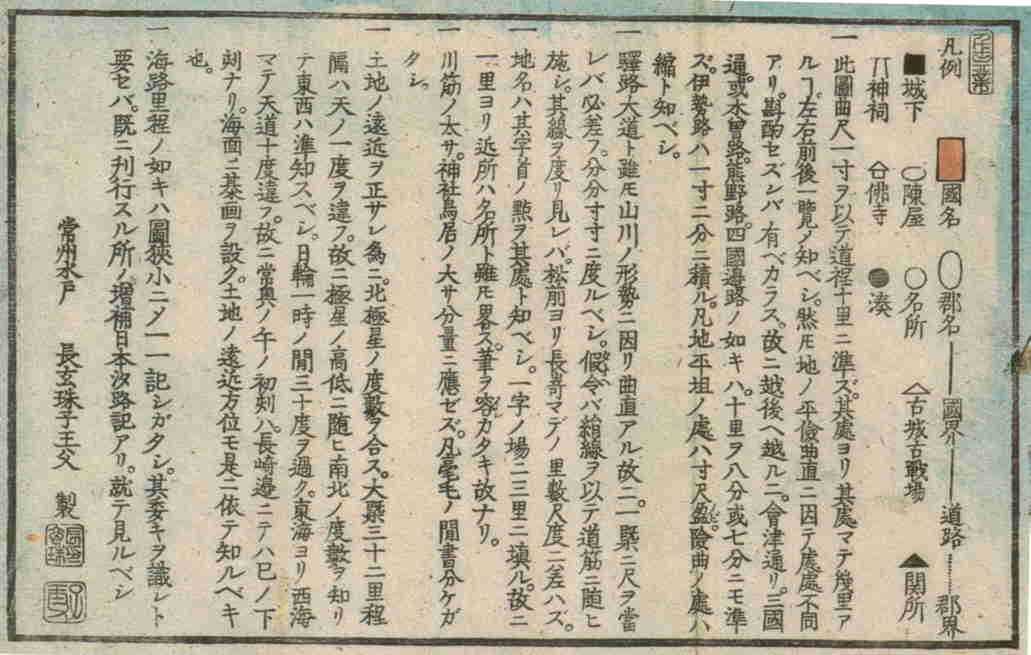 凡例 國名 郡名 國界 道路 郡界
城下 陳屋 名所 古城古戰場 関所
神祠 佛寺 湊
一 此圖曲尺一寸ヲ以テ道程十里ニ準ズ。其處ヨリ其處マテ幾里ア
ルヿ左右前後一覽〆知ベシ。然𪜈地ノ平儉曲直ニ因テ處處不同
アリ。斟酌セズンバ有ベカラス。故ニ越後ヘ越ルニ。會津通リ。三國
通。或木曽路。熊野路。四國邊路ノ如キハ。十里ヲ八分或七分ニモ準
ズ。伊勢路ハ一寸二分ニ積ル。凡地平坦ノ處ハ寸尺盈險曲ノ處ハ
縮ト知ベシ。
一 驛路大道ト雖𪜈山川ノ形勢ニ因リ曲直アル故ニ。一槩ニ尺ヲ當
レバ必差フ。分分寸寸ニ度ルベシ。假令バ絹線ヲ以テ道筋ニ随ヒ
施シ。其線ヲ度リ見レバ。松前ヨリ長嵜マデノ里數尺度ニ差ハズ。
一 地名ハ其字首ノ㸃ヲ其處ト知ベシ。一字ノ場二三里ニ塡ル。故ニ
一里ヨリ近所ハ名所ト雖𪜈畧ス。筆ヲ容カタキ故ナリ。
一 川筋ノ太サ。神社鳥居ノ大サ分量ニ應ゼズ。凡毫毛ノ間書分ケガ
タシ。
一 土地ノ遠近ヲ正サン為ニ。北極星ノ度數ヲ合ス。大槩三十二里程
隔ハ天ノ一度ヲ違フ。故ニ極星ノ高低ニ随ヒ南北ノ度數ヲ知リ
テ東西ハ準知スベシ。日輪一時ノ間三十度ヲ過ク。東海ヨリ西海
マテ天道十度違フ。故ニ常奥ノ午ノ初刻ハ。長崎邊ニテハ巳ノ下
刻ナリ。海面ニ棊画ヲ設ク。土地ノ遠近方位モ是ニ依テ知ルベキ
也。
一 海路里程ノ如キハ圖狹小ニ〆一一記シガタシ。其委キヲ識ント
要セバ。既ニ刊行スル所ノ増補日本汐路記アリ。就テ見ルベシ
常州水戸 長玄珠子玉父 製